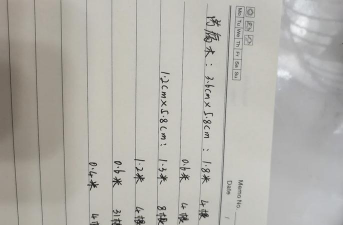 Memo No.
Date
Mo Tu We Th Fr Sa Su
防腐木：3.6cm×5.8cm：1.8米 4根
0.6米 4根
1.2cm×5.8cm：1.3米 8根
1.2米 4根
0.6米 3根
0.4米 4根